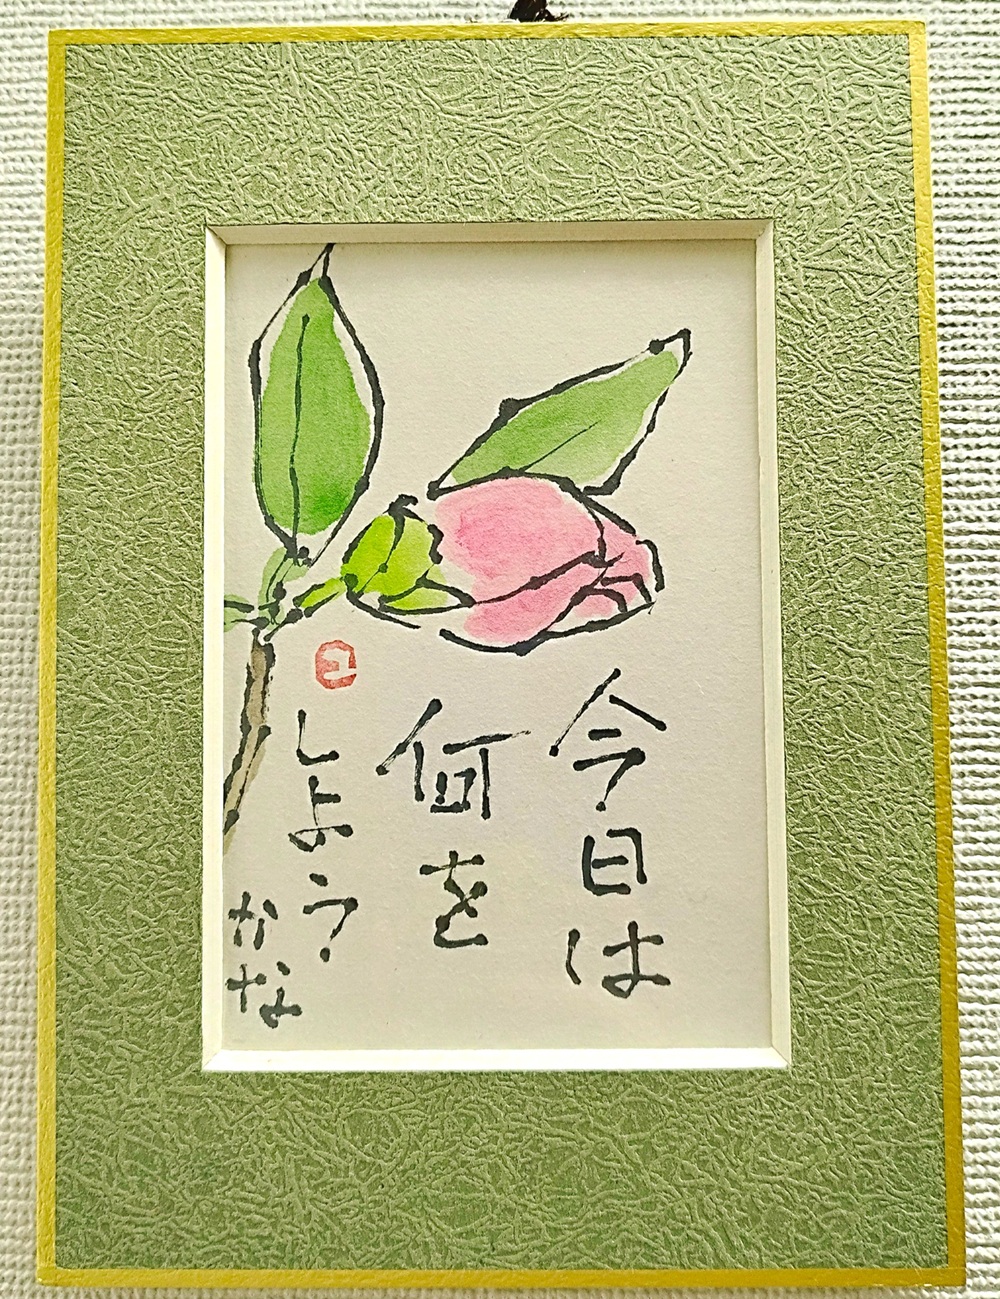 今日は
何を
しよう
かな
ヨ